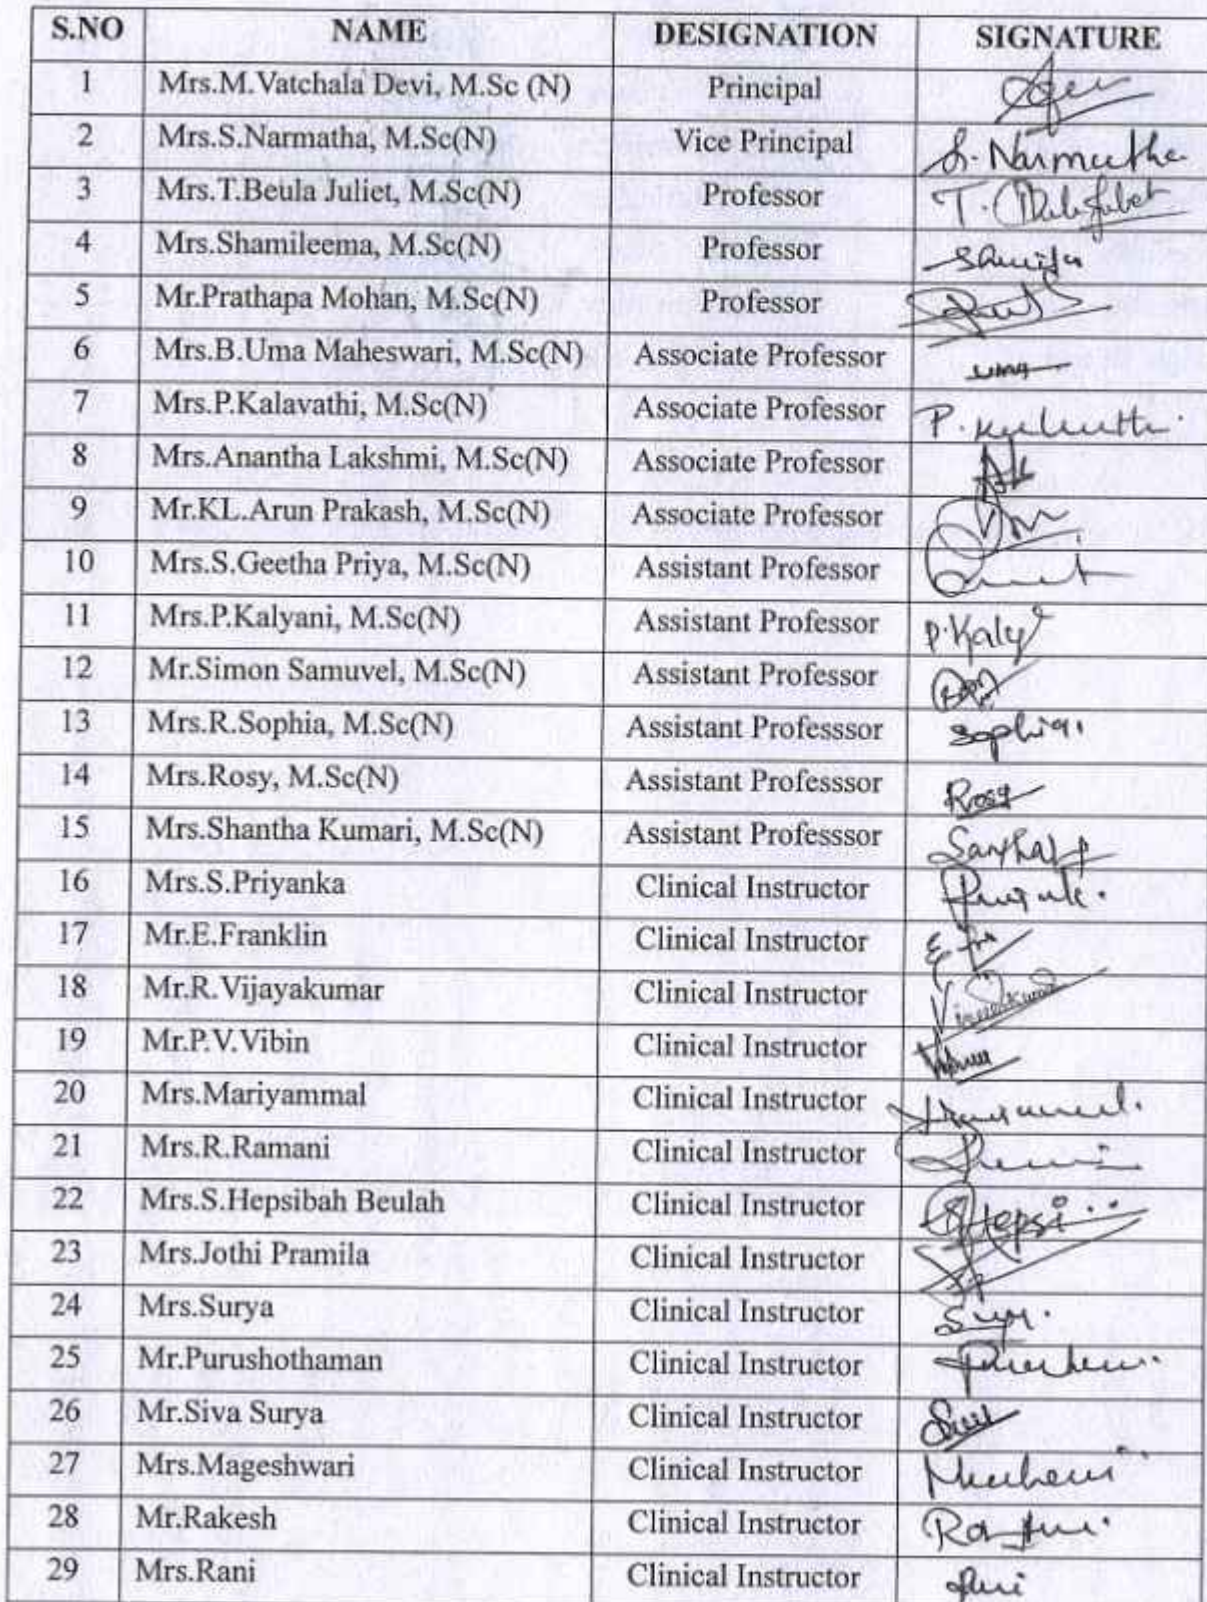 S.NO NAME DESIGNATION SIGNATURE
1 Mrs.M.Vatchala Devi, M.Sc (N) Principal
2 Mrs.S.Narmatha, M.Sc(N) Vice Principal S. Narmatha
3 Mrs.T.Beula Juliet, M.Sc(N) Professor T.
4 Mrs.Shamileema, M.Sc(N) Professor
5 Mr.Prathapa Mohan, M.Sc(N) Professor
6 Mrs.B.Uma Maheswari, M.Sc(N) Associate Professor uma
7 Mrs.P.Kalavathi, M.Sc(N) Associate Professor P.
8 Mrs.Anantha Lakshmi, M.Sc(N) Associate Professor
9 Mr.KL.Arun Prakash, M.Sc(N) Associate Professor
10 Mrs.S.Geetha Priya, M.Sc(N) Assistant Professor
11 Mrs.P.Kalyani, M.Sc(N) Assistant Professor P.Kaly
12 Mr.Simon Samuvel, M.Sc(N) Assistant Professor
13 Mrs.R.Sophia, M.Sc(N) Assistant Professsor Sophia.
14 Mrs.Rosy, M.Sc(N) Assistant Professsor Rosy
15 Mrs.Shantha Kumari, M.Sc(N) Assistant Professsor
16 Mrs.S.Priyanka Clinical Instructor
17 Mr.E.Franklin Clinical Instructor
18 Mr.R.Vijayakumar Clinical Instructor Vijayakumar
19 Mr.P.V.Vibin Clinical Instructor
20 Mrs.Mariyammal Clinical Instructor
21 Mrs.R.Ramani Clinical Instructor
22 Mrs.S.Hepsibah Beulah Clinical Instructor Hepsi
23 Mrs.Jothi Pramila Clinical Instructor
24 Mrs.Surya Clinical Instructor
25 Mr.Purushothaman Clinical Instructor
26 Mr.Siva Surya Clinical Instructor
27 Mrs.Mageshwari Clinical Instructor
28 Mr.Rakesh Clinical Instructor
29 Mrs.Rani Clinical Instructor